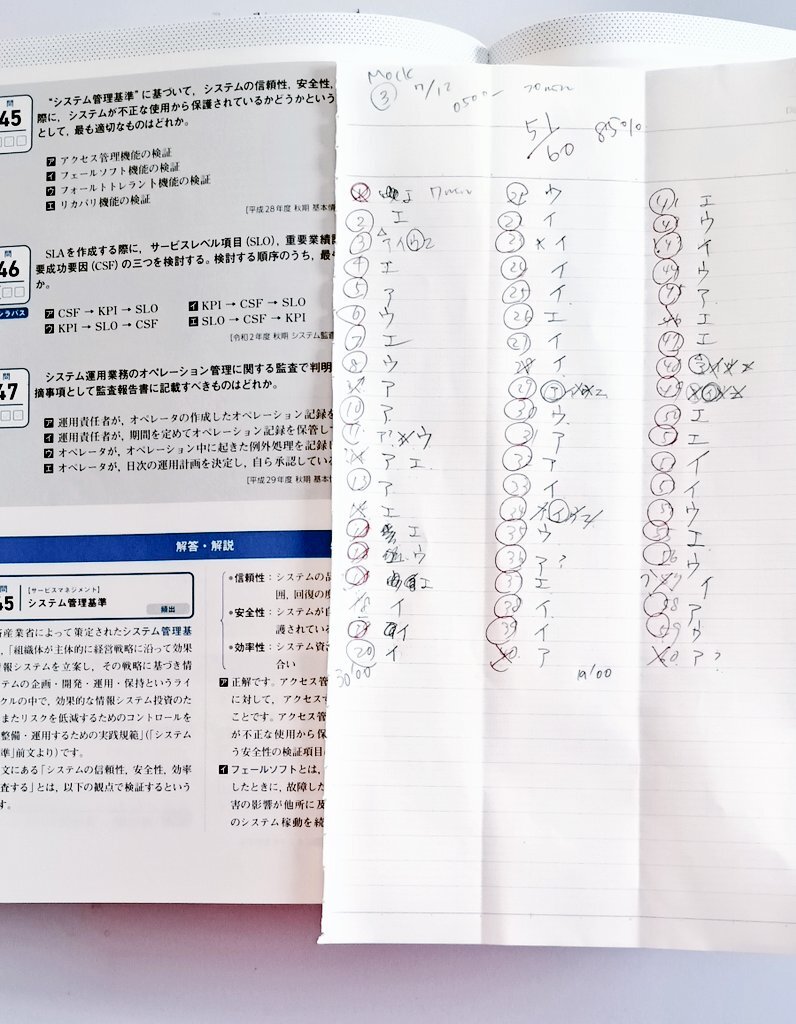 問
45
"システム管理基準"に基づいて，システムの信頼性，安全性，
際に，システムが不正な使用から保護されているかどうかという
として，最も適切なものはどれか。
ア アクセス管理機能の検証
イ フェールソフト機能の検証
ウ フォールトトレラント機能の検証
エ リカバリ機能の検証
[平成28年度 秋期 基本情
問
46
シラバス
SLAを作成する際に，サービスレベル項目(SLO)，重要業績
要成功要因(CSF)の三つを検討する。検討する順序のうち，最
か。
ア CSF → KPI → SLO イ KPI → CSF → SLO
ウ KPI → SLO → CSF エ SLO → CSF → KPI
[令和2年度 秋期 システム監
問
47
システム運用業務のオペレーション管理に関する監査で判明
摘事項として監査報告書に記載すべきものはどれか。
ア 運用責任者が，オペレータの作成したオペレーション記録を
イ 運用責任者が，期間を定めてオペレーション記録を保管し
ウ オペレータが，オペレーション中に起きた例外処理を記録し
エ オペレータが，日次の運用計画を決定し，自ら承認している
[平成29年度 秋期 基本情
解答・解説
45
[サービスマネジメント]
システム管理基準
頻出
産業省によって策定されたシステム管理基
，「組織体が主体的に経営戦略に沿って効果
報システムを立案し，その戦略に基づき情
テムの企画・開発・運用・保持というライ
クルの中で，効果的な情報システム投資のた
またリスクを低減するためのコントロールを
整備・運用するための実践規範」(「システム
準」前文より)です。
文にある「システムの信頼性，安全性，効率
査する」とは，以下の観点で検証するという
す。
•信頼性：システムの品
囲，回復の度
•安全性：システムが自
護されている
•効率性：システム資
合い
ア 正解です。アクセス管
に対して，アクセス
ことです。アクセス管
が不正な使用から保
う安全性の検証項目
イ フェールソフトとは，
したときに，故障した
害の影響が他所に及
のシステム稼動を続
Mock
③ 7/12 0500~ 70min
51/60 85%
7min
2 エ
3 アイウエ
4 エ
5 ア
6 ウ
7 エ
8 ウ
ア
10 ア
11 ア? ウ
ア エ
13 ア
エ
エ
ウ
エ
18 イ
イ
20 イ
30'00
ウ
イ
イ
24 イ
25 イ
26 エ
27 イ
28 イ
29 エ
30 ウ
31 ア
32 ア
33 イ
34 イ
35 ウ
36 ア?
37 エ
38 イ
39 イ
40 ア
19'00
41 エ
42 ウ
43 イ
44 ウ
45 ア
46 エ
47 エ
48
49
50 エ
51 エ
52 イ
53 イ
54 ウ
55 エ
56 ウ
イ
58 ア
59 ウ
60 ア?